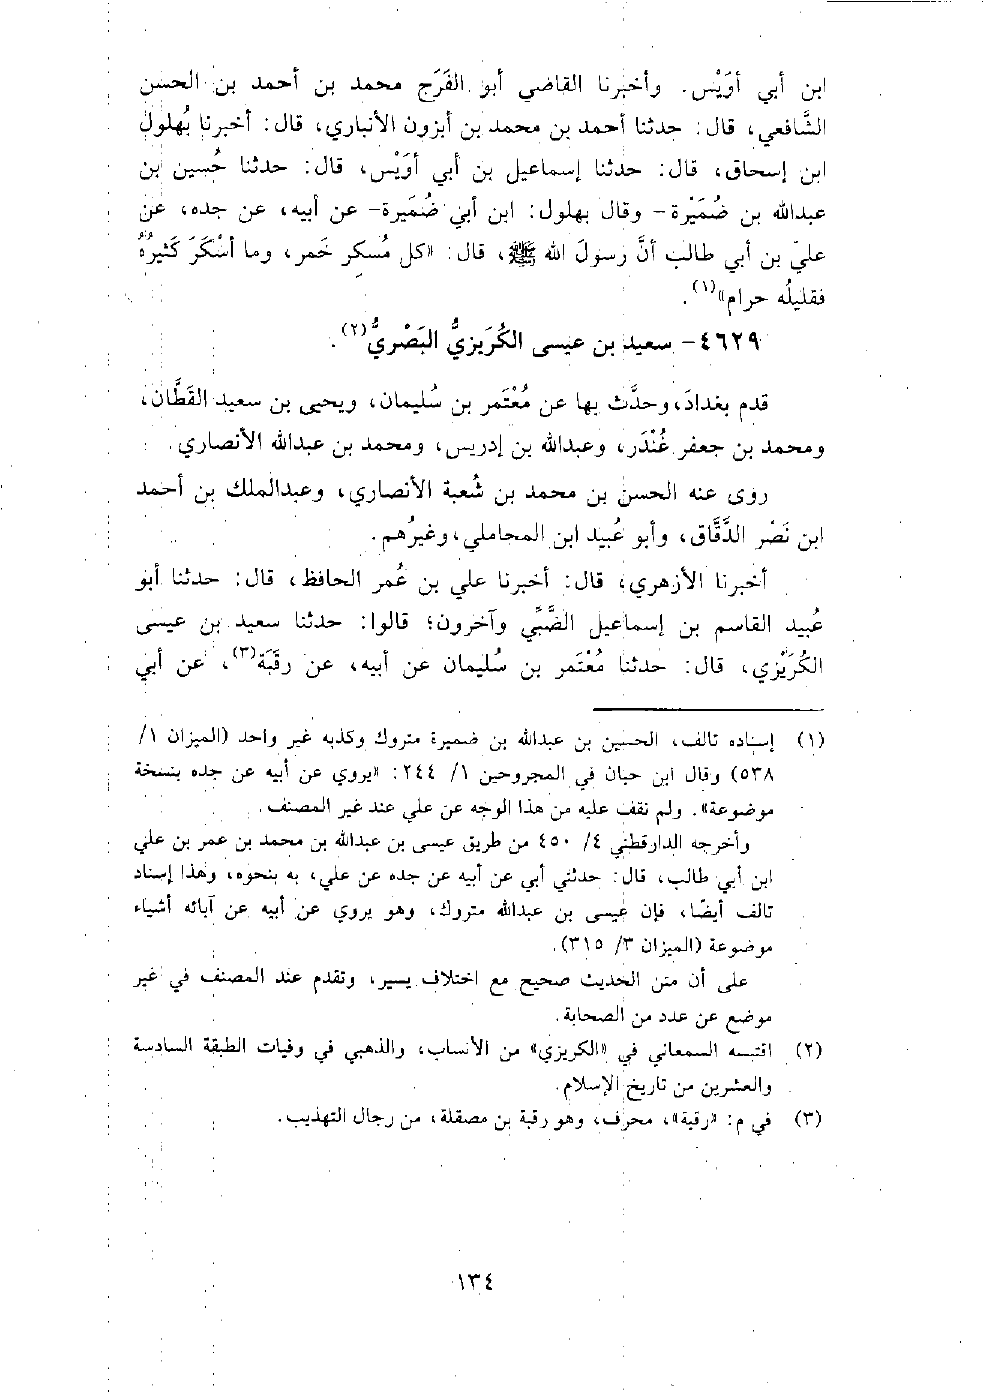 ابن أبي أوَيْس. وأخبرنا القاضي أبو الفَرَج محمد بن أحمد بن الحسن
الشَّافعي، قال: حدثنا أحمد بن محمد بن أبزون الأنباري، قال: أخبرنا بُهلول
ابن إسحاق، قال: حدثنا إسماعيل بن أبي أوَيْس، قال: حدثنا حُسين بن
عبدالله بن ضُمَيْرة - وقال بهلول: ابن أبي ضُمَيرة - عن أبيه، عن جده، عن
عليّ بن أبي طالب أنَّ رسولَ الله ﷺ، قال: «كل مُسكر خَمر، وما أسْكَرَ كَثيرُهُ
فقليلُه حرام»(١).
٤٦٢٩- سعيد بن عيسى الكُرَيزيُّ البَصْريُّ(٢).
قدم بغدادَ، وحدَّث بها عن مُعْتَمر بن سُليمان، ويحيى بن سعيد القَطَّان،
ومحمد بن جعفر غُنْدَر، وعبدالله بن إدريس، ومحمد بن عبدالله الأنصاري.
روى عنه الحسن بن محمد بن شُعبة الأنصاري، وعبدالملك بن أحمد
ابن نَصْر الدَّقَّاق، وأبو عُبيد ابن المحاملي، وغيرُهم.
أخبرنا الأزهري، قال: أخبرنا علي بن عُمر الحافظ، قال: حدثنا أبو
عُبيد القاسم بن إسماعيل الضَّبِّي وآخرون؛ قالوا: حدثنا سعيد بن عيسى
الكُرَيْزي، قال: حدثنا مُعْتَمر بن سُليمان عن أبيه، عن رقَبَة(٣)، عن أبي
(١) إسناده تالف، الحسين بن عبدالله بن ضميرة متروك وكذبه غير واحد (الميزان ١/
٥٣٨) وقال ابن حبان في المجروحين ١/ ٢٤٤: «يروي عن أبيه عن جده بنسخة
موضوعة». ولم نقف عليه من هذا الوجه عن علي عند غير المصنف.
وأخرجه الدارقطني ٤/ ٤٥٠ من طريق عيسى بن عبدالله بن محمد بن عمر بن علي
ابن أبي طالب، قال: حدثني أبي عن أبيه عن جده عن علي، به بنحوه، وهذا إسناد
تالف أيضًا، فإن عيسى بن عبدالله متروك، وهو يروي عن أبيه عن آبائه أشياء
موضوعة (الميزان ٣/ ٣١٥).
على أن متن الحديث صحيح مع اختلاف يسير، وتقدم عند المصنف في غير
موضع عن عدد من الصحابة.
(٢) اقتبسه السمعاني في «الكريزي» من الأنساب، والذهبي في وفيات الطبقة السادسة
والعشرين من تاريخ الإسلام.
(٣) في م: «رقية»، محرف، وهو رقبة بن مصقلة، من رجال التهذيب.
١٣٤